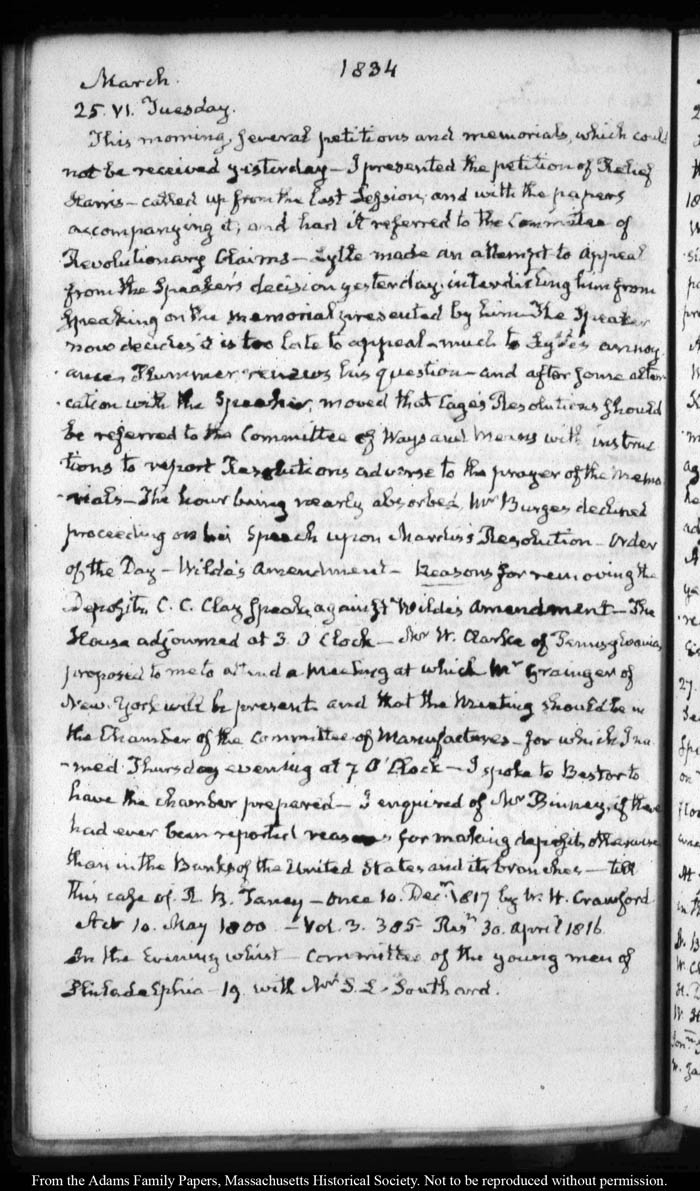 1834
March.
25. VI. Tuesday.
This morning, several petitions and memorials, which could
not be received yesterday — I presented the petition of Relief
Harris — called up from the last Session, and with the papers
accompanying it, and had it referred to the Committee of
Revolutionary Claims — Lytle made an attempt to appeal
from the Speaker's decision yesterday, interdicting him from
speaking on the memorial presented by him. The Speaker
now decides it is too late to appeal — much to Lytle's annoy
-ance, Plummer renews his question — and after some alter
-cation with the Speaker, moved that Cage's Resolutions should
be referred to the Committee of Ways and Means with instruc
-tions to report Resolutions adverse to the prayer of the Memo
-rials — The hour being nearly absorbed, Mr Burges declined
proceeding on his Speech upon Mardis's Resolution — Order
of the Day — Wilde's Amendment — Reasons for removing the
Deposits. C. C. Clay speaks against Wilde's amendment — The
House adjourned at 3. O Clock — Mr W. Clarke of Pennsylvania,
proposed to me to attend a Meeting at which Mr Grainger of
New-York will be present and that the Meeting should be in
the Chamber of the Committee of Manufactures — for which I na
-med Thursday evening at 7 O'Clock — I spoke to Bestor to
have the chamber prepared — I enquired of Mr Binney, if there
had ever been reported reasons for making deposits otherwise
than in the Banks of the United States and its branches — till
this case of R. B. Taney — once 10. Decr 1817 by W. H. Crawford
Act 10. May 1800 — Vol. 3. 385 — Resn 30. April 1816.
In the Evening whist — Committee of the young men of
Philadelphia — 19. with Mr S. L. Southard.
From the Adams Family Papers, Massachusetts Historical Society. Not to be reproduced without permission.